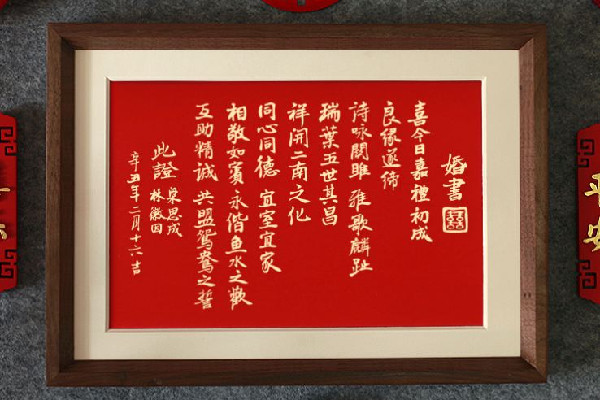 平安
婚書
囍
喜今日嘉禮初成
良缘遂缔
诗咏關雎 雅歌麟趾
瑞葉五世其昌
祥開二南之化
同心同德 宜室宜家
相敬如賓 永偕鱼水之歡
互助精诚 共盟鴛鴦之誓
此證
梁思成
林徽因
辛丑年二月十六吉